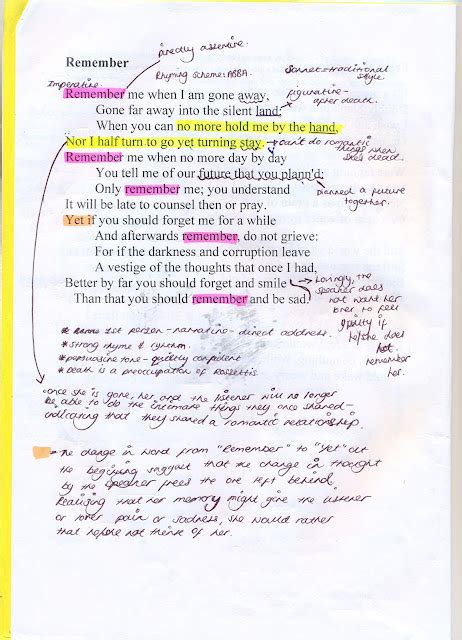 Remember
directly assertive.
Rhyming scheme: ABBA.
Sonnet = traditional
style
Imperative.
Remember me when I am gone away,
figurative -
after death.
Gone far away into the silent land;
When you can no more hold me by the hand,
Nor I half turn to go yet turning stay.
can't do romantic
things when
she's dead.
Remember me when no more day by day
You tell me of our future that you plann'd:
planned a future
together.
Only remember me; you understand
It will be late to counsel then or pray.
Yet if you should forget me for a while
And afterwards remember, do not grieve:
For if the darkness and corruption leave
A vestige of the thoughts that once I had,
Better by far you should forget and smile
Than that you should remember and be sad.
Lovingly, the
speaker does
not want her
lover to feel
guilty if
he/she does
not
remember
her.
* 1st person - narrative - direct address.
* Strong rhyme & rhythm.
* persuasive tone - quietly confident
* Death is a preoccupation of Rossettis.
once she is gone, her and the listener will no longer
be able to do the intimate things they once shared -
indicating that they shared a romantic relationship.
The change in word from "Remember" to "Yet" at
the beginning suggest that the change in thought
by the speaker frees the one left behind.
Realising that her memory might give the listener
or lover pain or sadness, she would rather
that he/she not think of her.